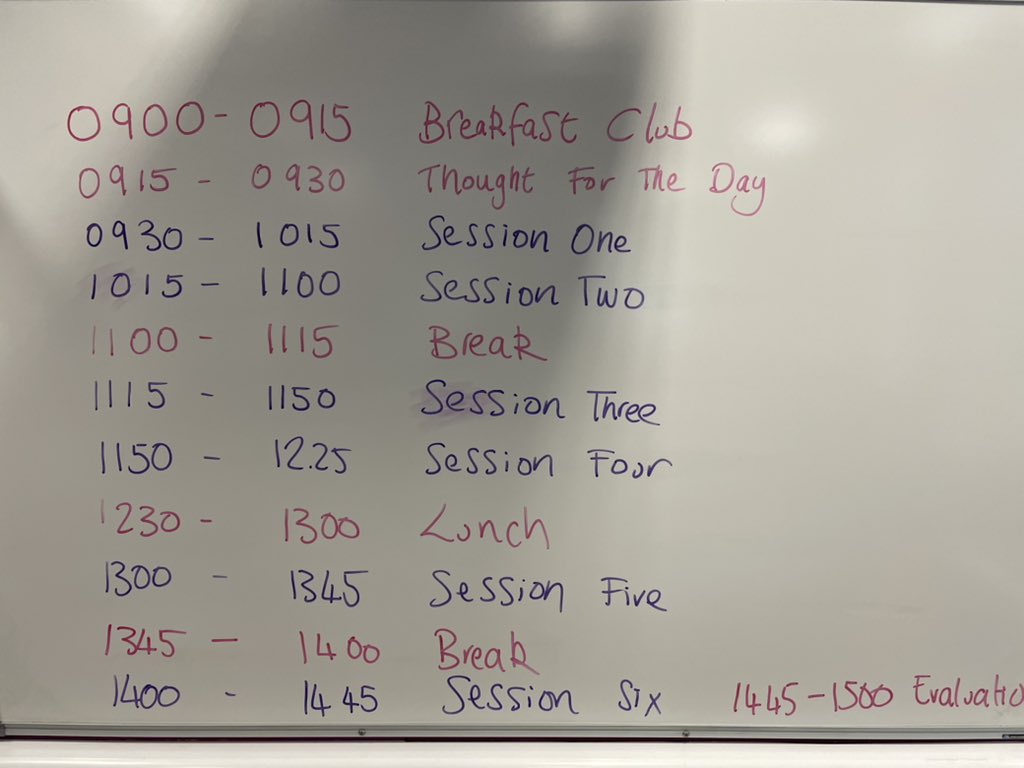 0900 - 0915 Breakfast Club
0915 - 0930 Thought For The Day
0930 - 1015 Session One
1015 - 1100 Session Two
1100 - 1115 Break
1115 - 1150 Session Three
1150 - 12.25 Session Four
1230 - 1300 Lunch
1300 - 1345 Session Five
1345 - 1400 Break
1400 - 1445 Session Six 1445-1500 Evaluatio